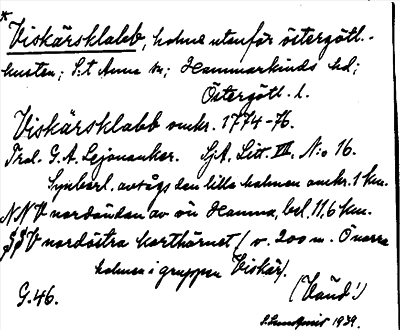 *
Viskärsklabb, holme utanför östergötl.-
kusten; S:t Anna sn; Hammarkinds hd;
Östergötl. l.
Viskärsklabb omkr. 1774-76.
Trol. G. A. Lejonanker. SjA, Litt. III, N:o 16.
Synbarl. avsågs den lilla holmen omkr. 1 km.
NNV nordändan av ön Hamnna, bel. 11,6 km.
SSV nordöstra korthörnet (v. 200 m. Ö norra
holmen i gruppen Viskär).
(Vänd!)
G.46.
1939.